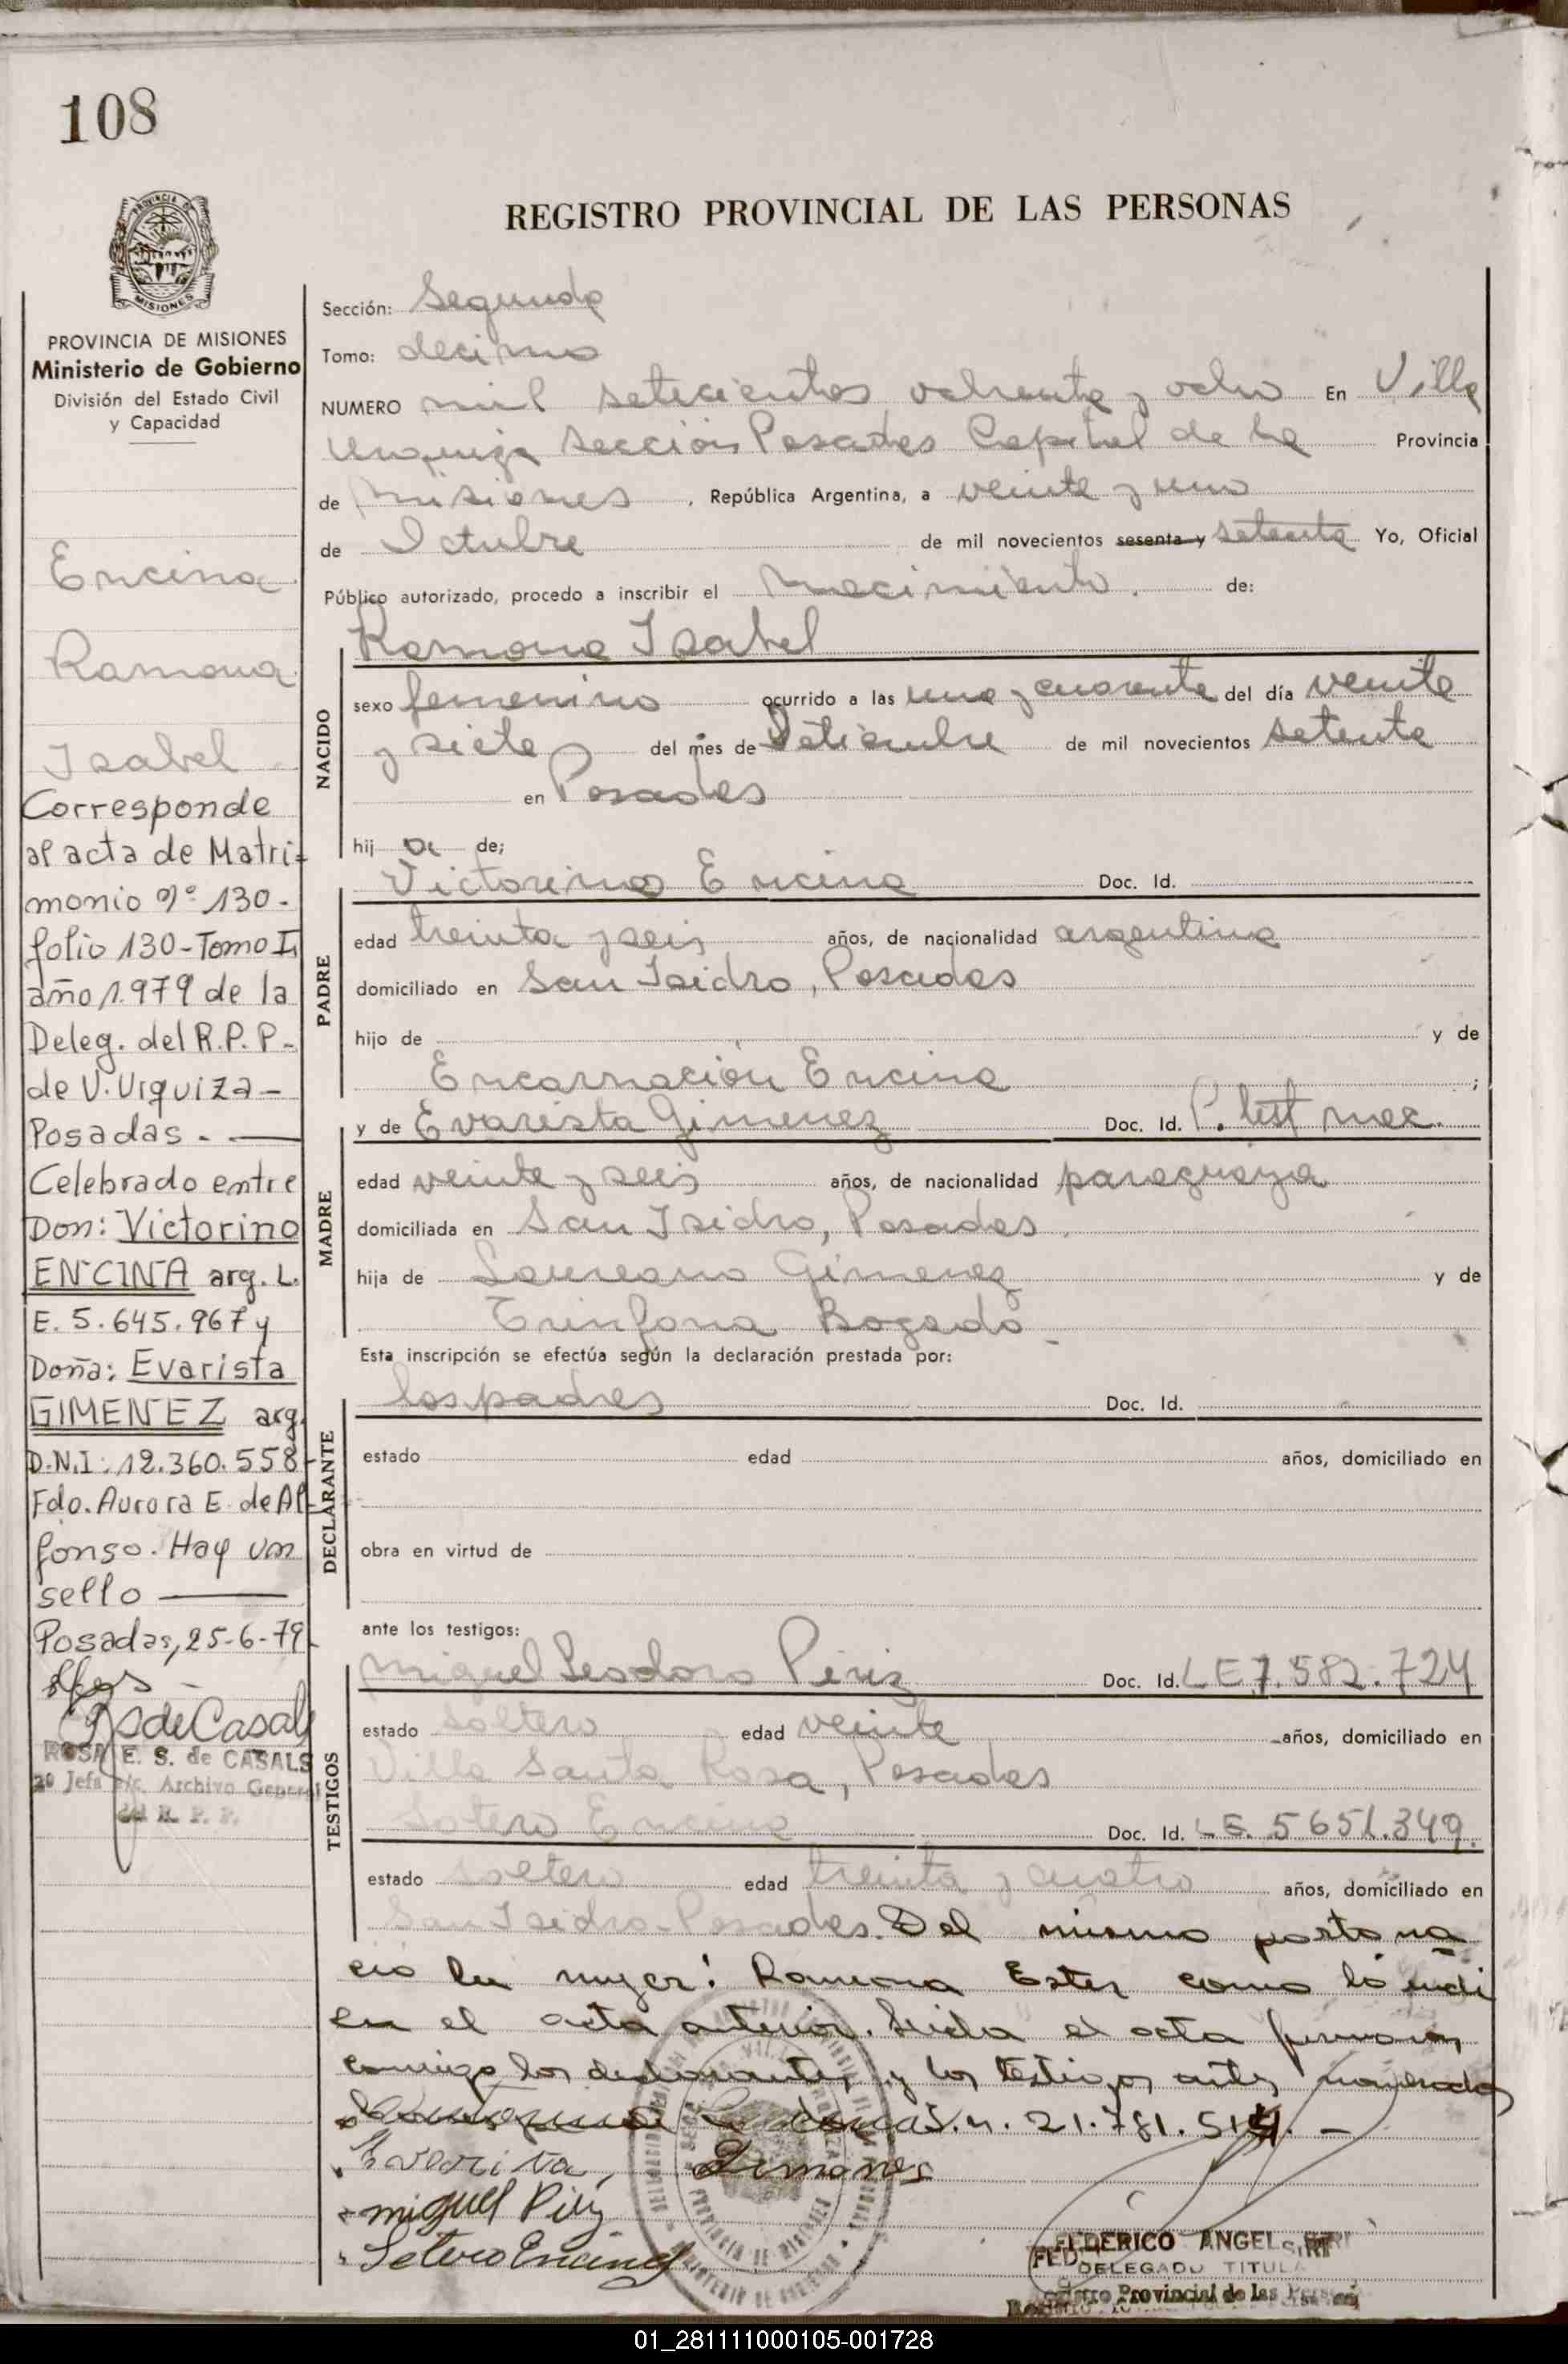 108
REGISTRO PROVINCIAL DE LAS PERSONAS
MISIONES
PROVINCIA DE MISIONES
Ministerio de Gobierno
División del Estado Civil
y Capacidad
Encina
Ramona
Isabel
Corresponde
al acta de Matri-
monio Nº 130-
folio 130-Tomo I,
año 1.979 de la
Deleg. del R.P.P-
de V. Urquiza-
Posadas.-
Celebrado entre
Don: Victorino
ENCINA arg. L.
E. 5.645.967 y
Doña: Evarista
GIMENEZ arg.
D.N.I: 12.360.558-
Fdo. Aurora E. de Al-
fonso. Hay un
sello
Posadas, 25-6-79
ROSA E. S. de CASALS
2º Jefa a/c. Archivo General
del R. P. P.
Sección: Segunda
Tomo: decimo
NUMERO mil setecientos ochenta y ocho En Villa
Urquiza sección Posadas Capital de la Provincia
de Misiones, República Argentina, a veinte y uno
de Octubre de mil novecientos sesenta y setenta Yo, Oficial
Público autorizado, procedo a inscribir el nacimiento. de:
Ramona Isabel
NACIDO
sexo femenino ocurrido a las una y cuarenta del día veinte
y siete del mes de Setiembre de mil novecientos setenta
en Posadas
hija de;
Victorino Encina Doc. Id.
PADRE
edad treinta y seis años, de nacionalidad argentina
domiciliado en San Isidro, Posadas
hijo de y de
Encarnación Encina;
y de Evarista Gimenez Doc. Id. P. test nac.
MADRE
edad veinte y seis años, de nacionalidad paraguaya
domiciliada en San Isidro, Posadas.
hija de Laureano Gimenez y de
Trinfona Bogado
Esta inscripción se efectúa según la declaración prestada por:
los padres Doc. Id.
DECLARANTE
estado edad años, domiciliado en
obra en virtud de
ante los testigos:
Miguel Leodoro Piriz Doc. Id. LE 7.582.724
TESTIGOS
estado soltero edad veinte años, domiciliado en
Villa Santa Rosa, Posadas
Sotero Encina Doc. Id. LE. 5651.349.
estado soltero edad treinta y cuatro años, domiciliado en
San Isidro-Posadas. Del mismo parto na
ció la mujer: Ramona Ester como lo indi
en el acta anterior. Leida el acta firmaron
conmigo los declarantes y los testigos antes nombrados
21.781.514.-
Evarista Gimenes
Miguel Piriz
Sotero Encina
FEDERICO ANGEL
DELEGADO TITULAR
Registro Provincial de las Personas
01_281111000105-001728